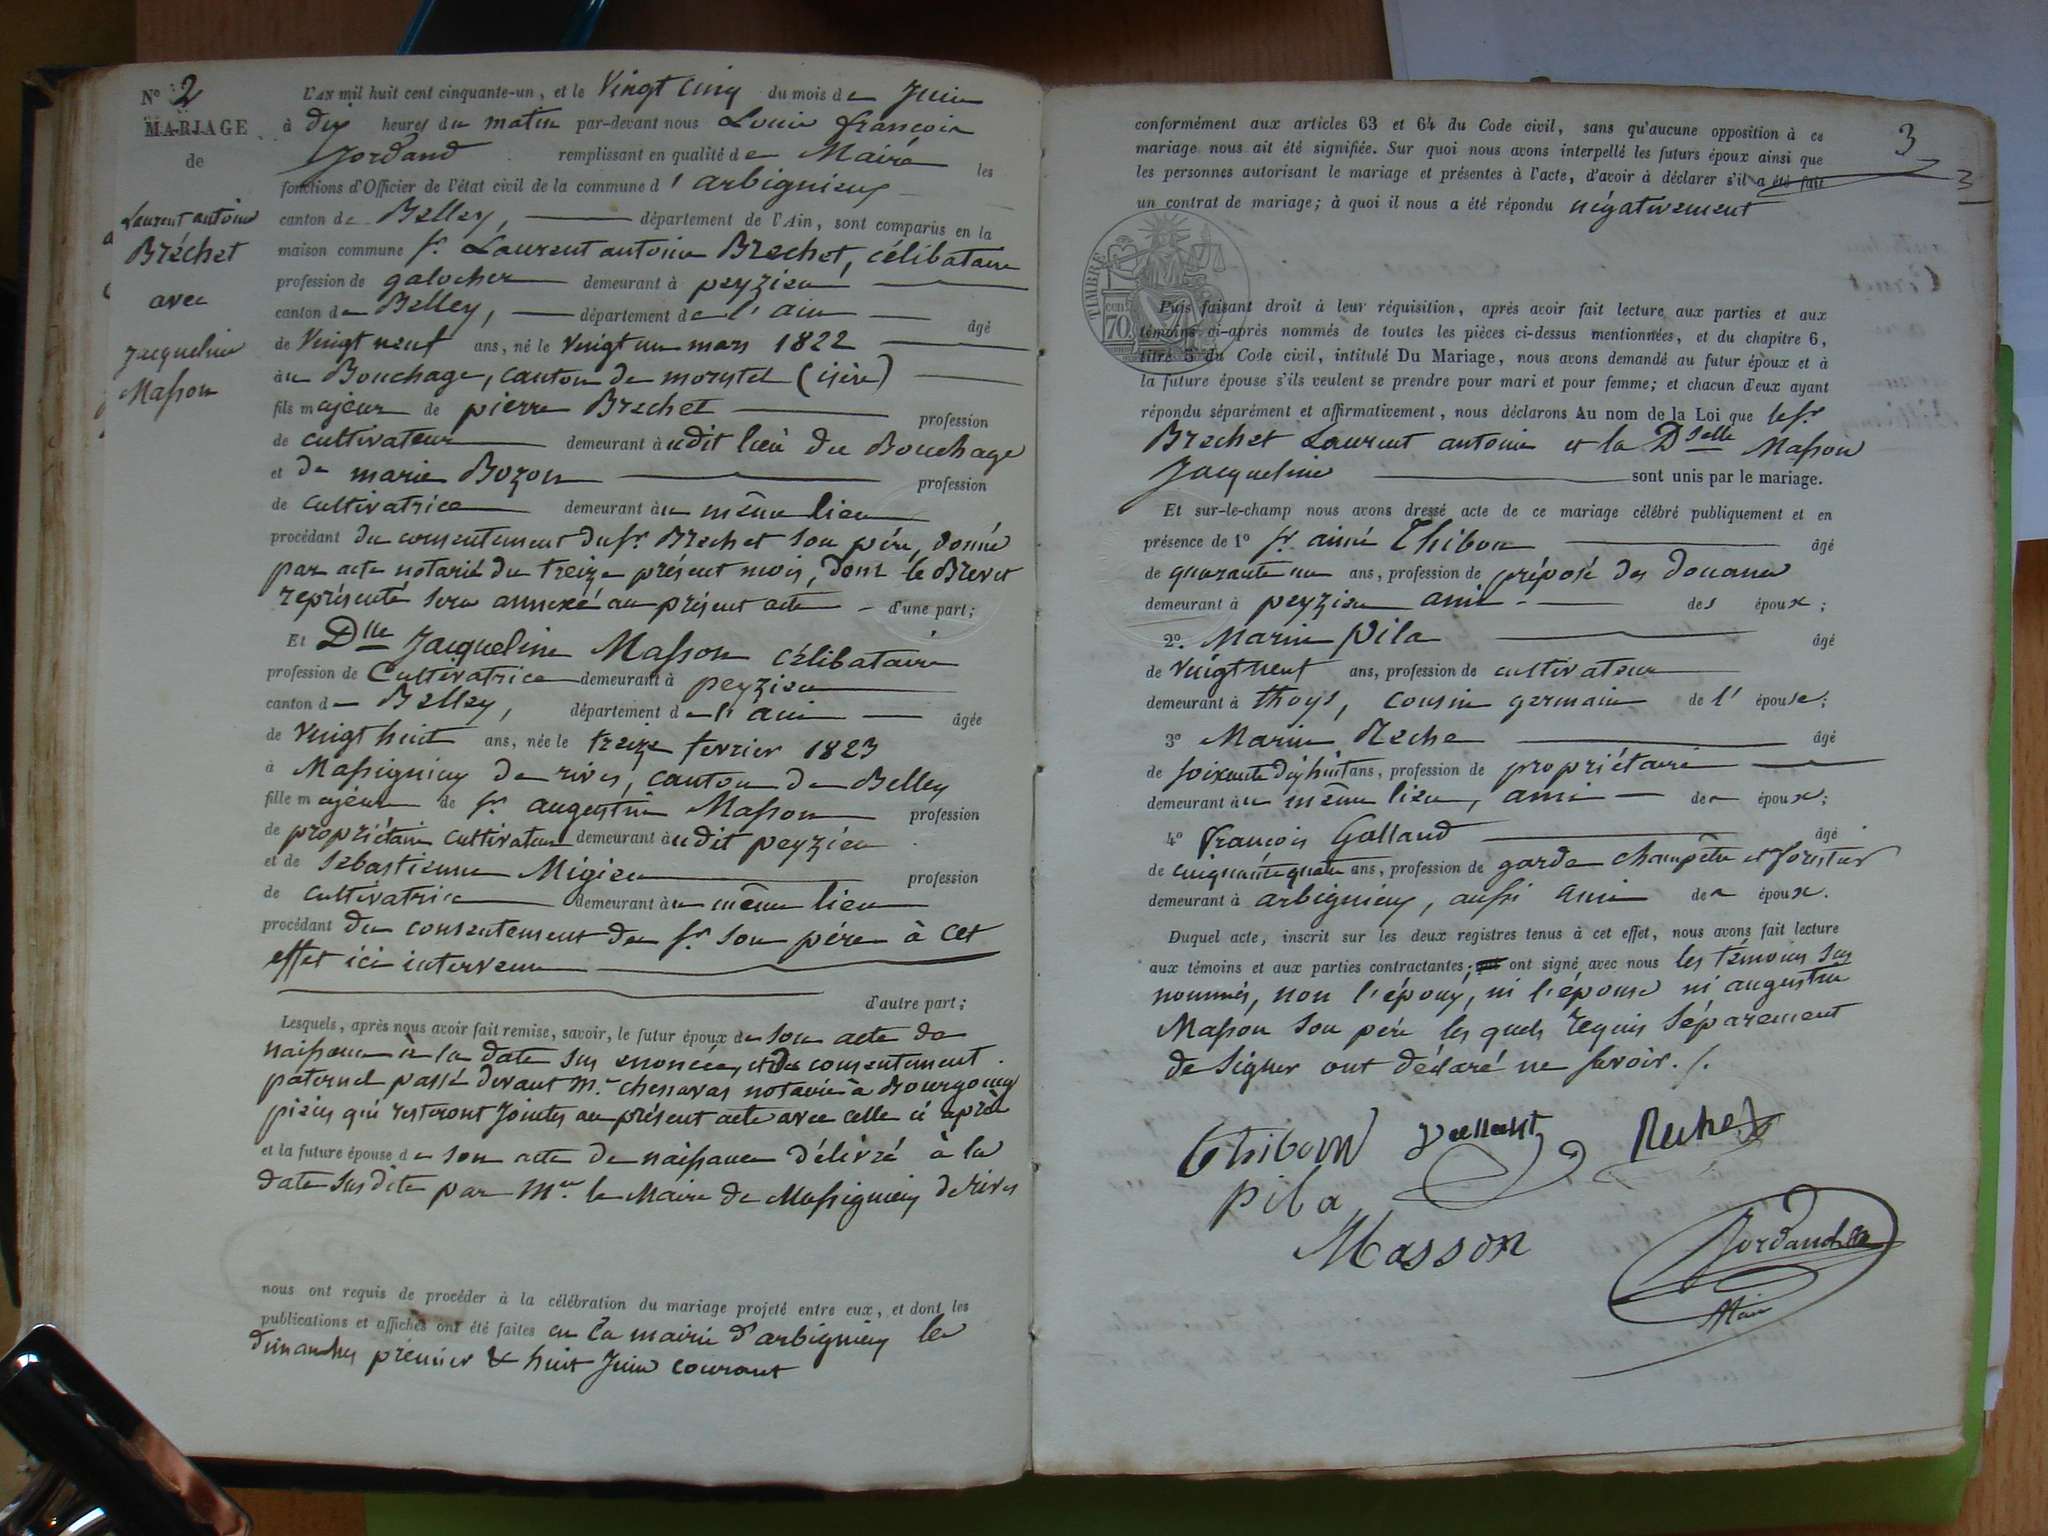 N° 2
MARIAGE
de
Laurent antoine
Bréchet
avec
Jacqueline
Masson
L'AN mil huit cent cinquante-un, et le Vingt cinq du mois de Juin
à dix heures du matin par-devant nous Louis françois
Jordand remplissant en qualité de Maire les
fonctions d'Officier de l'état civil de la commune d'arbignieux
canton de Belley, département de l'Ain, sont comparus en la
maison commune sr. Laurent antoine Brechet, célibataire
profession de galocher demeurant à peyzieu
canton de Belley, département de l'ain âgé
de Vingt neuf ans, né le vingt un mars 1822
au Bouchage, canton de morestel (isère)
fils majeur de pierre Brechet profession
de cultivateur demeurant audit lieu du Bouchage
et de marie Bozon profession
de cultivatrice demeurant au même lieu
procédant du consentement du sr. Brechet son père, donné
par acte notarié du treize présent mois, dont le Brevet
représenté sera annexé au présent acte d'une part;
Et Dlle Jacqueline Masson célibataire
profession de Cultivatrice demeurant à peyzieu
canton de Belley, département de l'ain âgée
de Vingt huit ans, née le treize fevrier 1823
à Massignieu de rives, canton de Belley
fille majeure de sr. augustin Masson profession
de propriétaire cultivateur demeurant audit peyzieu
et de Sébastienne Migieu profession
de cultivatrice demeurant au même lieu
procédant du consentement du sr. son père à cet
effet ici intervenu
d'autre part;
Lesquels, après nous avoir fait remise, savoir, le futur époux de son acte de
naissance à la date sus enoncée, et du consentement
paternel passé devant Mr. chenavas notaire à Bourgoing
pièces qui resteront jointes au présent acte avec celle ci après
et la future épouse de son acte de naissance délivré à la
date susdite par Mr le Maire de Massignieu de rives
nous ont requis de procéder à la célébration du mariage projeté entre eux, et dont les
publications et affiches ont été faites en la mairie d'arbignieu les
dimanches premier & huit Juin courant
3
3
conformément aux articles 63 et 64 du Code civil, sans qu'aucune opposition à ce
mariage nous ait été signifiée. Sur quoi nous avons interpellé les futurs époux ainsi que
les personnes autorisant le mariage et présentes à l'acte, d'avoir à déclarer s'il a été fait
un contrat de mariage; à quoi il nous a été répondu négativement
TIMBRE
70
Puis faisant droit à leur réquisition, après avoir fait lecture aux parties et aux
témoins ci-après nommés de toutes les pièces ci-dessus mentionnées, et du chapitre 6,
titre 5 du Code civil, intitulé Du Mariage, nous avons demandé au futur époux et à
la future épouse s'ils veulent se prendre pour mari et pour femme; et chacun d'eux ayant
répondu séparément et affirmativement, nous déclarons Au nom de la Loi que le sr
Brechet Laurent antoine et la Dselle Masson
Jacqueline sont unis par le mariage.
Et sur-le-champ nous avons dressé acte de ce mariage célébré publiquement et en
présence de 1° sr. aimé Thibon âgé
de quarante un ans, profession de préposé des douanes
demeurant à peyzieu ami des époux;
2°. Marin Pila âgé
de vingt neuf ans, profession de cultivateur
demeurant à thoys, cousin germain de l'épouse;
3° Marin âgé
de soixante dix huit ans, profession de propriétaire
demeurant au même lieu, ami des époux;
4° François Galland âgé
de cinquante quatre ans, profession de garde champêtre et forestier
demeurant à arbignieu, aussi ami des époux.
Duquel acte, inscrit sur les deux registres tenus à cet effet, nous avons fait lecture
aux témoins et aux parties contractantes, qui ont signé avec nous les témoins sus
nommés, non l'époux, ni l'épouse ni augustin
Masson son père les quels requis séparement
de signer ont déclaré ne savoir ./.
Thibon
Pila
Masson
Jordand
Maire